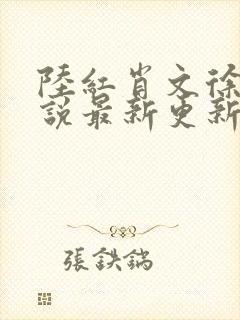 陸紅肖文徐
說最新更新
張鉄鍋